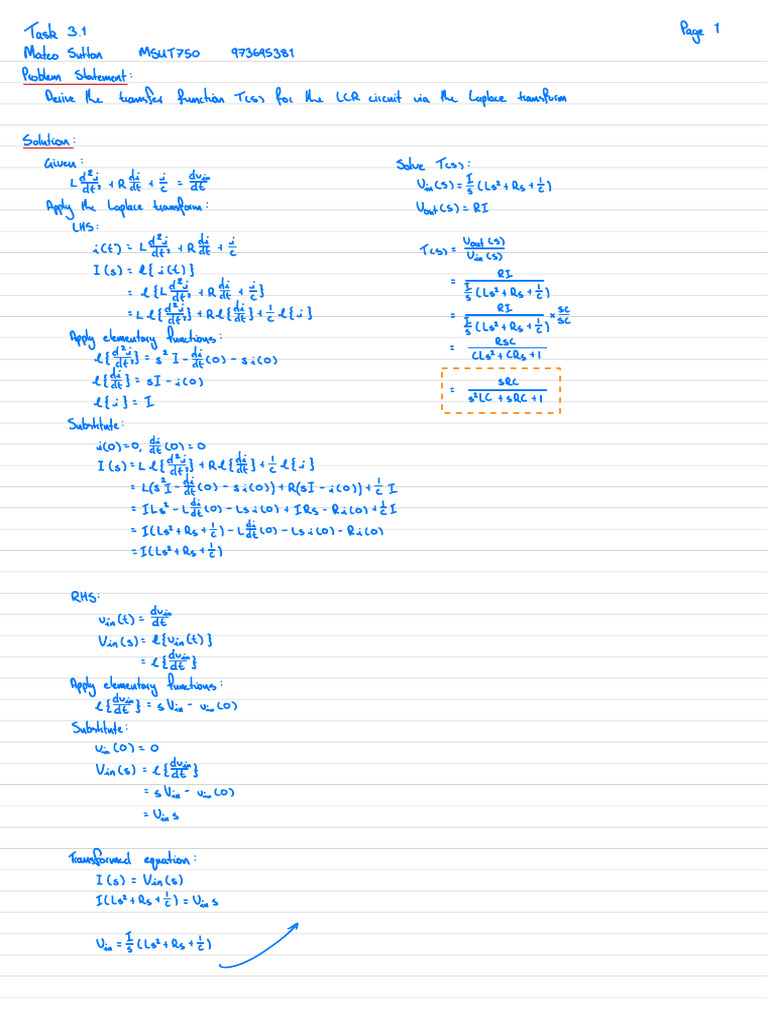 Task 3.1
Page 1
Mateo Sutton MSUT750 973645381
Problem Statement:
Derive the transfer function T(s) for the LCR circuit via the Laplace transform
Solution:
Given:
L d²i/dt² + R di/dt + i/c = dvin/dt
Apply the Laplace transform:
LHS:
i(t) = L d²i/dt² + R di/dt + i/c
I(s) = ℓ{i(t)}
= ℓ{L d²i/dt² + R di/dt + i/c}
= Lℓ{d²i/dt²} + Rℓ{di/dt} + 1/c ℓ{i}
Apply elementary functions:
ℓ{d²i/dt²} = s²I - di/dt(0) - si(0)
ℓ{di/dt} = sI - i(0)
ℓ{i} = I
Substitute:
i(0)=0, di/dt(0)=0
I(s) = Lℓ{d²i/dt²} + Rℓ{di/dt} + 1/c ℓ{i}
= L(s²I - di/dt(0) - si(0)) + R(sI - i(0)) + 1/c I
= ILs² - L di/dt(0) - Lsi(0) + IRs - Ri(0) + 1/c I
= I(Ls² + Rs + 1/c) - L di/dt(0) - Lsi(0) - Ri(0)
= I(Ls² + Rs + 1/c)
RHS:
vin(t) = dvin/dt
Vin(s) = ℓ{vin(t)}
= ℓ{dvin/dt}
Apply elementary functions:
ℓ{dvin/dt} = sVin - vin(0)
Substitute:
vin(0) = 0
Vin(s) = ℓ{dvin/dt}
= sVin - vin(0)
= Vin s
Transformed equation:
I(s) = Vin(s)
I(Ls² + Rs + 1/c) = Vin s
Vin = I/s (Ls² + Rs + 1/c)
Solve T(s):
Vin(s) = I/s (Ls² + Rs + 1/c)
Vout(s) = RI
T(s) = Vout(s)/Vin(s)
= RI / I/s (Ls² + Rs + 1/c)
= RI / I/s (Ls² + Rs + 1/c) × sc/sc
= RSC / CLs² + CRs + 1
= sRC / s²LC + sRC + 1